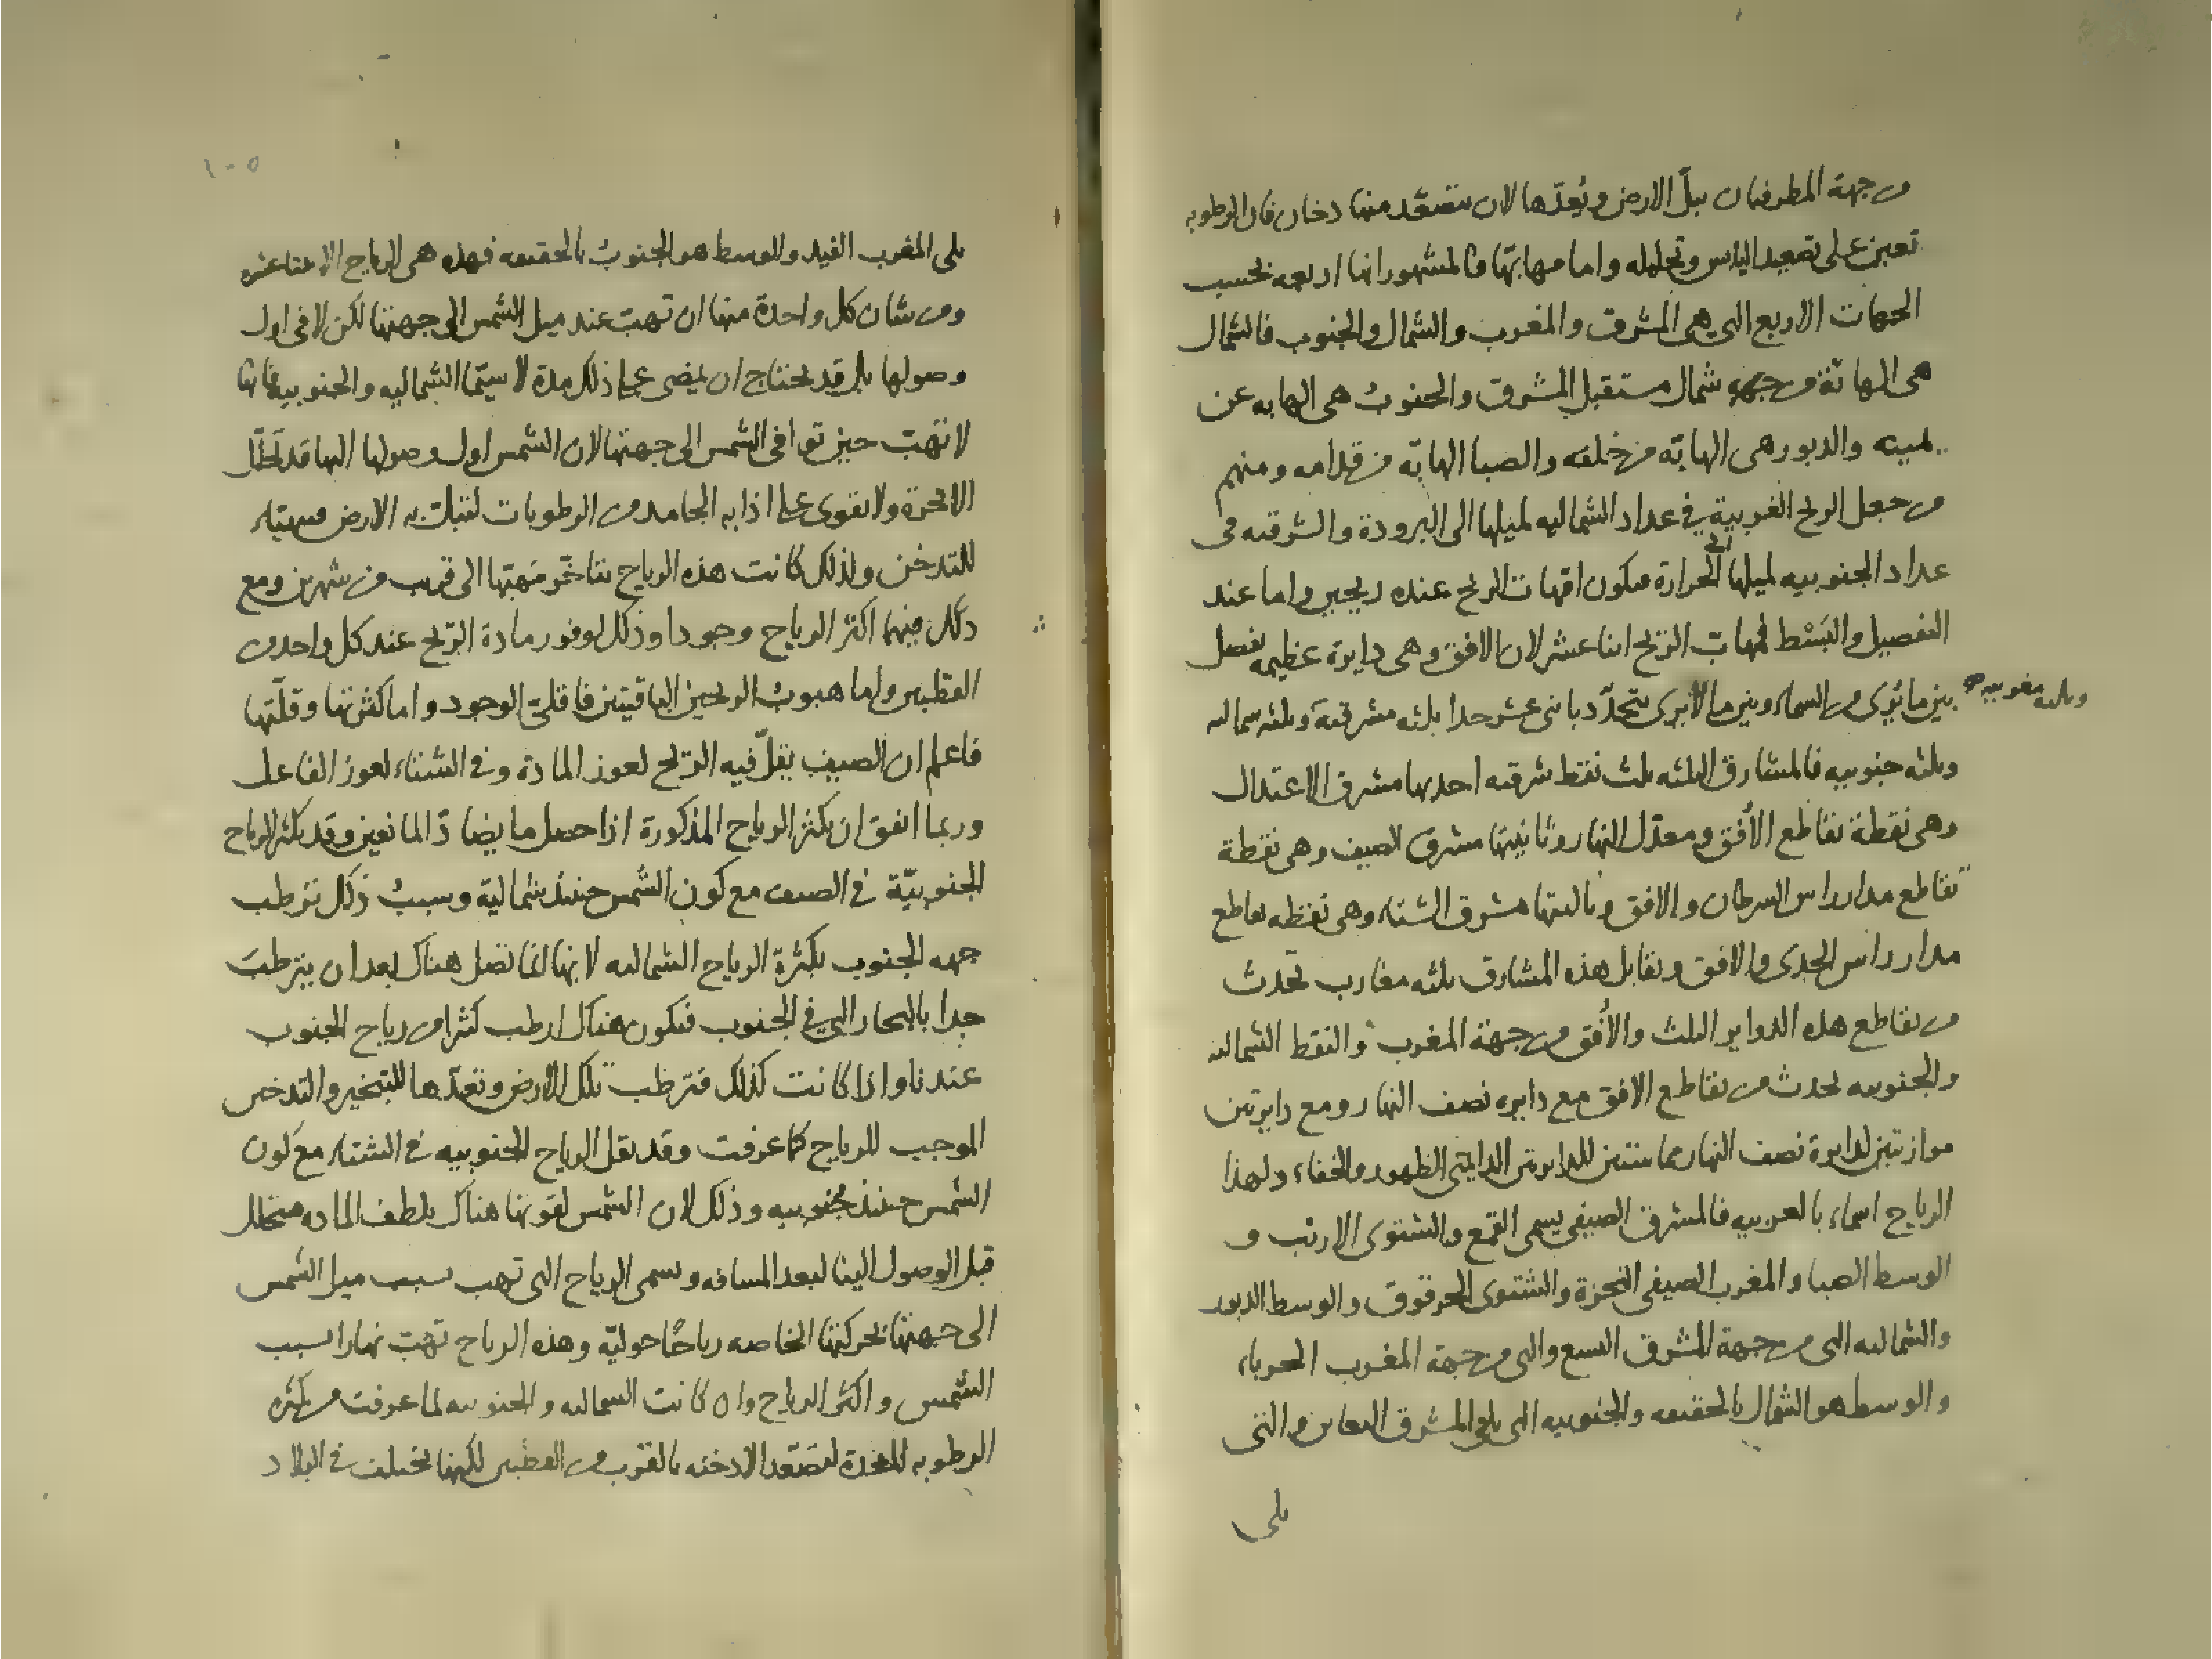 من جهة المطر فبان يبلّ الارض ويُعدّها لان يتصعّد منها دخان فان الرطوبه
تعين على تصعيد اليابس وتحلله واما مهابّها فالمشهور انها اربعه بحسب
الجهات الاربع التى هى المشرق والمغرب والشمال والجنوب فالشمال
هى الهابّة من جهه شمال مستقبل المشرق والجنوبُ هى الهابه عن
يمينه والدبور هى الهابّه من خلفه والصبا الهابّه من قدامه ومنهم
من جعل الريح الغربية فى عداد الشماليه لميلها الى البرودة والشرقيه فى
عداد الجنوبيه لميلها الى الحرارة فيكون امّهات الريح عنده ريحين واما عند
التفصيل والبَسْط فمهابّ الريح اثنا عشر لان الافق وهى دايرة عظيمه تفصل
بين ما يُرى من السماء وبين ما لا يرى يتحدّد باثنى عشر حدا ثلثه مشرقية وثلثه شماليه
وثلثه مغربيه
وثلثه جنوبيه فالمشارق الثلثه ثلث نقط شرقيه احديها مشرق الاعتدال
وهى نقطة تقاطع الأفق ومعدّل النهار وثانيتها مشرق الصيف وهى نقطة
تقاطع مدار راس السرطان والافق وثالثتها مشرق الشتاء وهى نقطه تقاطع
مدار راس الجدى والافق وتقابل هذه المشارق ثلثه مغارب تحدث
من تقاطع هذه الدواير الثلث والأفق من جهة المغرب والنقط الشماليه
والجنوبيه تحدث من تقاطع الافق مع دايره نصف النهار ومع دايرتين
موازيتين لدايرة نصف النهار مماستين للدايرتين الدايمتى الظهور والخفاء ولهذا
الرياح اسماء بالعربيه فالمشرق الصيفى يسمى القمع والشتوى الازيب و
الوسط الصبا والمغرب الصيفى النحزة والشتوى الحرقوق والوسط الدبور
والشماليه التى من جهة المشرق السبع والتى من جهة المغرب الحرباء
والوسط هو الشمال بالحقيقه والجنوبيه التى يلى المشرق النعامى والتى
يلى
١٠٥
يلى المغرب الفيد والوسط هو الجنوبُ بالحقيقه فهذه هى الرياح الاثنا عشره
ومن شان كل واحدة منها ان تهبّ عند ميل الشمس الى جهتها لكن لا فى اول
وصولها بل قد يحتاج ان يمضى على ذلك مدة لا سيّما الشماليه والجنوبيه فانها
لا تهبّ حين توافى الشمس الى جهتها لان الشمس اول وصولها اليها قد تحلّل
الابخرة ولا تقوى على اذابه الجامد من الرطوبات لتبتل به الارض فيتهيّاء
للتدخن ولذلك كانت هذه الرياح يتاخّر مَهبّها الى قريب من شهرين ومع
ذلك فهما اكثر الرياح وجودا وذلك لوفور مادة الرّيح عند كل واحد من
القطبين واما هبوبُ الريحين الباقيتين فاقلىّ الوجود واما كثرتها وقلّتها
فاعلم ان الصيف يقلّ فيه الرّيح لعوز المادة وفى الشتاء لعوز الفاعل
وربما اتفق ان يكثر الرياح المذكورة اذا حصل ما يضادّ المانعين وقد يكثر الرياح
الجنوبيّة فى الصيف مع كون الشمس حينئذ شمالية وسببُ ذلك ترطب
جهه الجنوب بكثرة الرياح الشماليه لانها انما تصل هناك بعد ان يترطبَ
جدا بالبحار التى فى الجنوب فيكون هناك ارطب كثيرا من رياح الجنوب
عندنا واذا كانت كذلك فترطب تلك الارض وتعدّها للتبخير والتدخين
الموجب للرياح كما عرفت وقد تقل الرياح الجنوبيه فى الشتاء مع كون
الشمس حينئذ جنوبيه وذلك لان الشمس لقوتها هناك يلطف الماده فيتحلل
قبل الوصول الينا لبعد المسافه ويسمى الرياح التى تهب بسبب ميل الشمس
الى جهتها بحركتها الخاصه رياحًا حوليّه وهذه الرياح تهبّ نهارا بسبب
الشمس واكثر الرياح وان كانت الشماليه والجنوبيه لما عرفت من كثره
الرطوبه المعدة لتصَعّد الادخنه بالقرب من القطبين لكنها تختلف فى البلاد